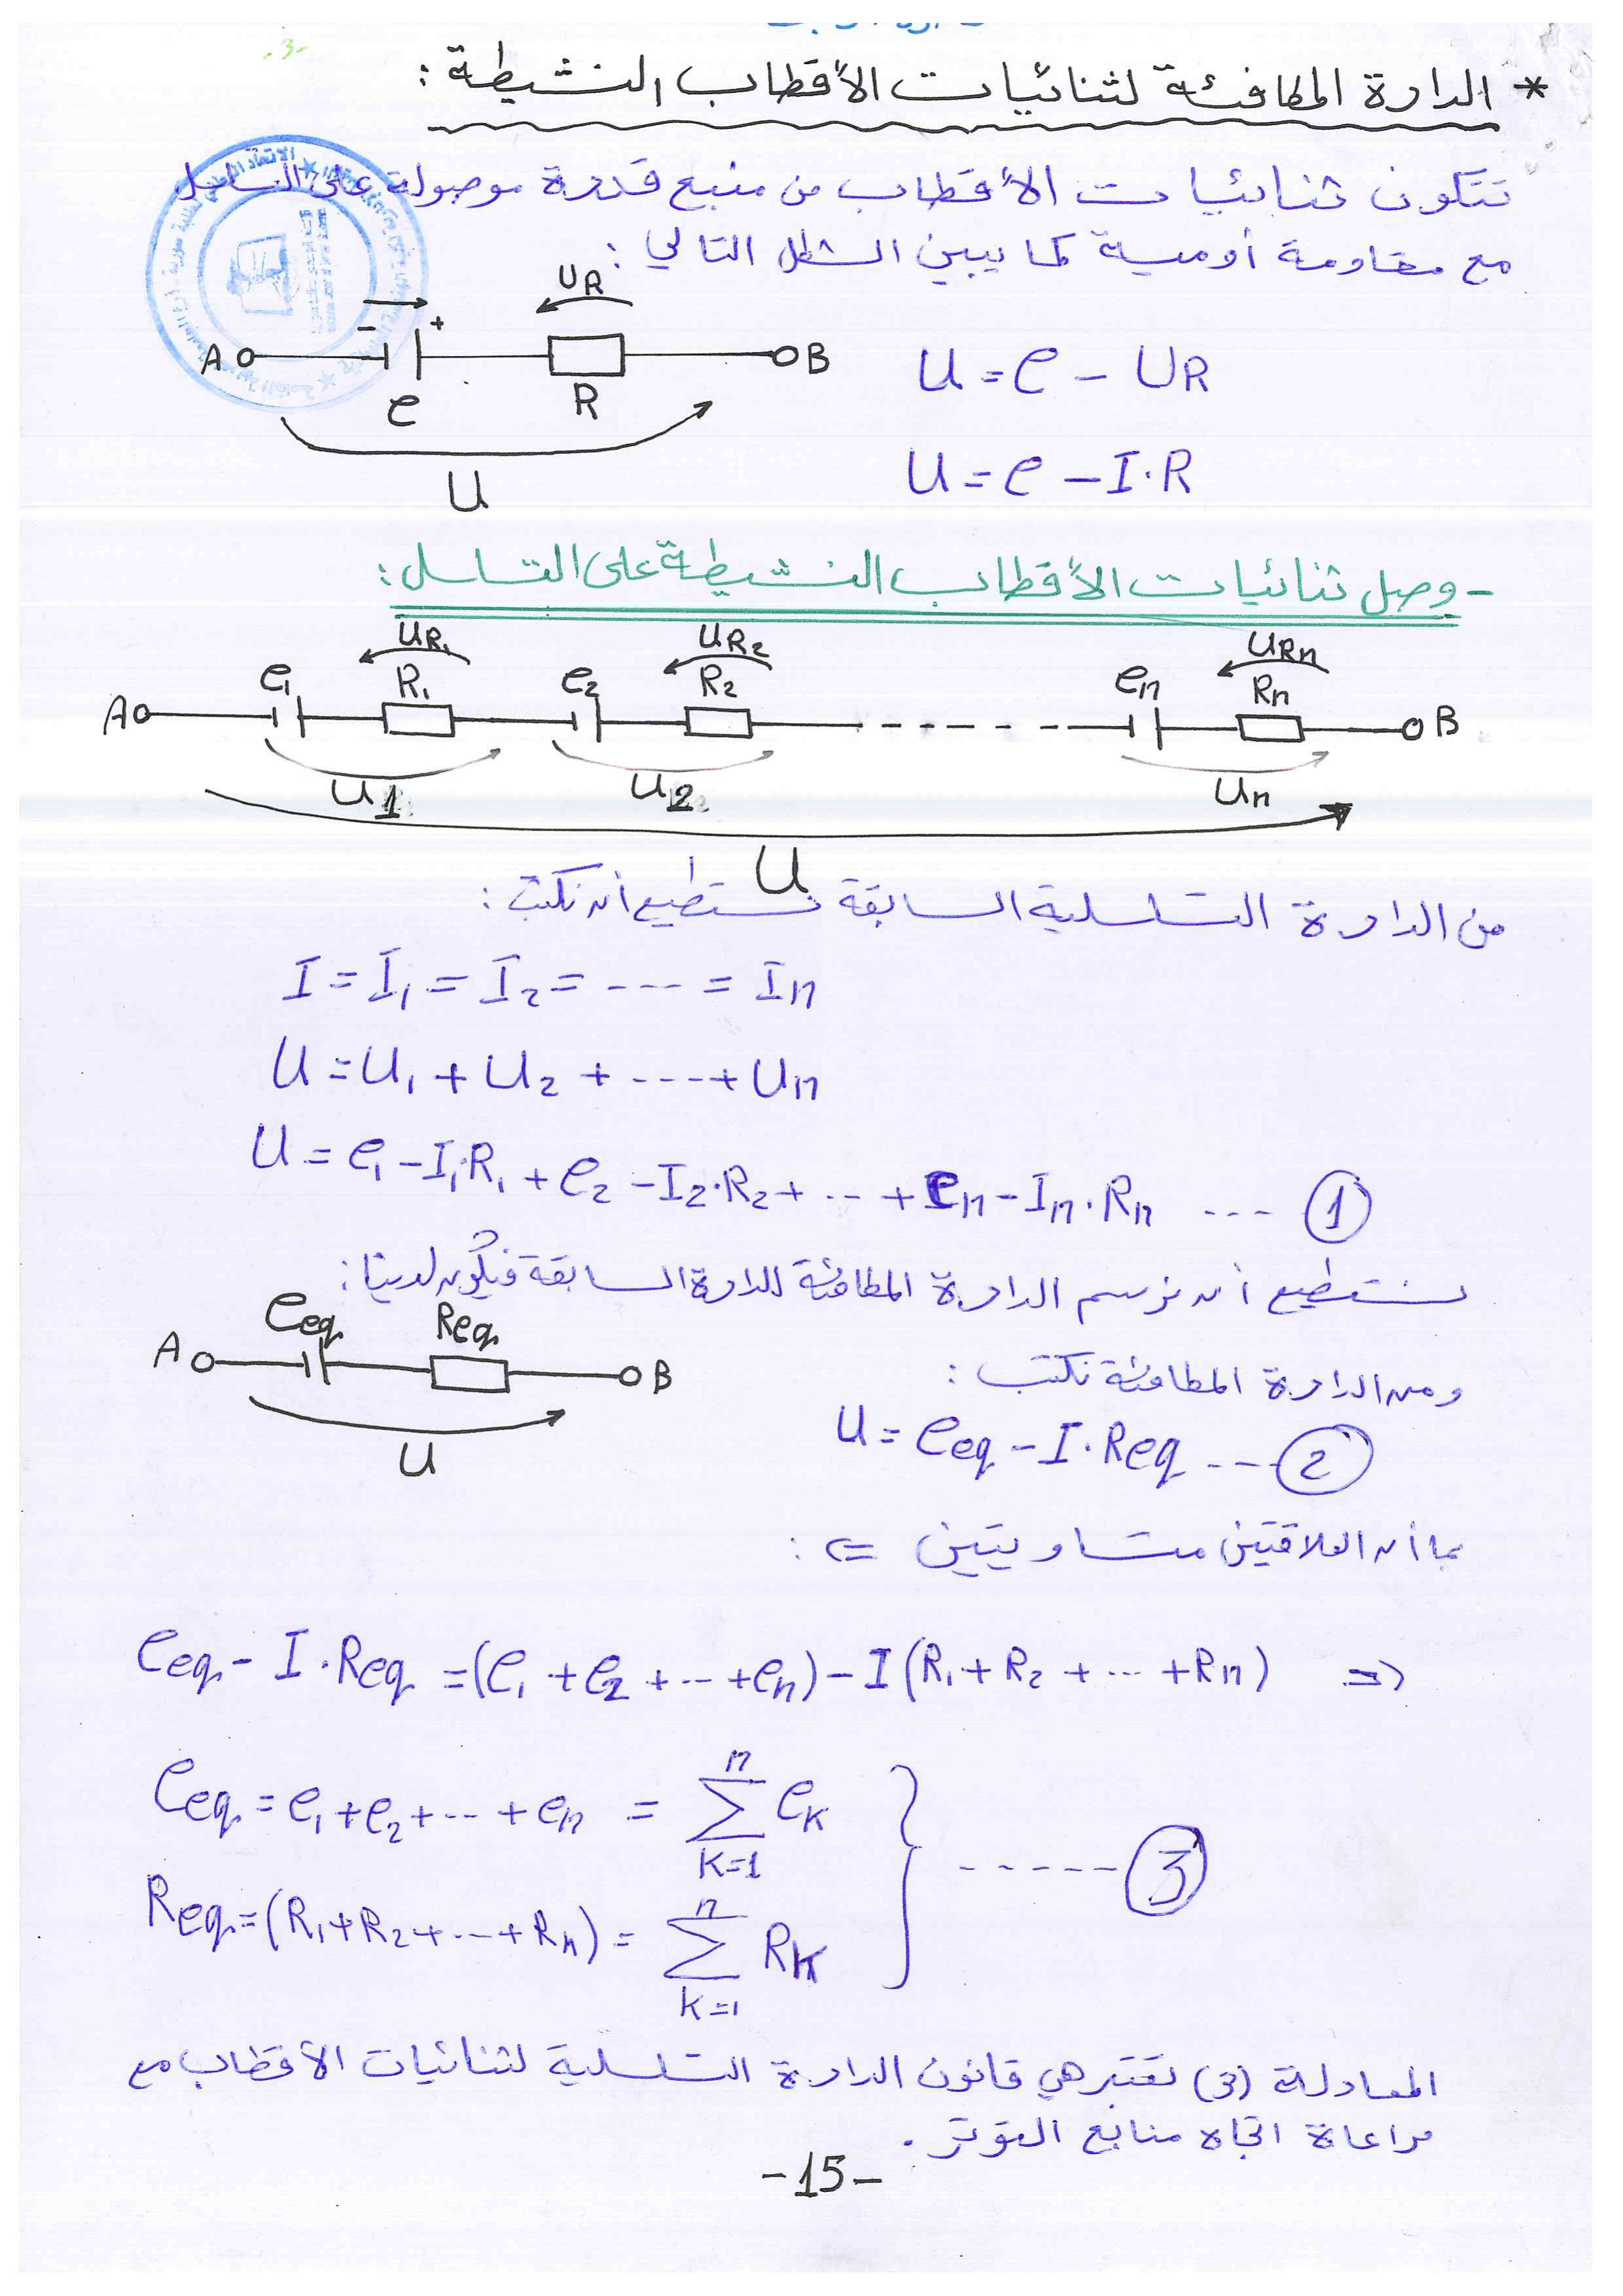 -3-
* الدارة المكافئة لثنائيات الأقطاب النشيطة :
تتكون ثنائيات الأقطاب من منبع قدرة موصولة على التسلسل
مع مقاومة أومية كما يبين الشكل التالي :
UR
- +
A B
e R
U
U = e - UR
U = e - I.R
- وصل ثنائيات الأقطاب النشيطة على التسلسل :
UR1 UR2 URn
e1 R1 e2 R2 en Rn
A B
U1 U2 Un
U
من الدارة التسلسلية السابقة نستطيع أن نكتب :
I = I1 = I2 = --- = In
U = U1 + U2 + ---- + Un
U = e1 - I1.R1 + e2 - I2.R2 + ... + en - In.Rn --- 1
نستطيع أن نرسم الدارة المكافئة للدارة السابقة فيكون لدينا :
eeq Req
A B
U
ومن الدارة المكافئة نكتب :
U = eeq - I.Req --- 2
بما أن العلاقتين متساويتين ⇐ :
eeq - I.Req = (e1 + e2 + ... + en) - I(R1 + R2 + ... + Rn) ⇒
eeq = e1 + e2 + ... + en = n∑k=1 eK
----- 3
Req = (R1 + R2 + ... + Rn) = n∑k=1 RK
المعادلة (3) تعتبر هي قانون الدارة التسلسلية لثنائيات الأقطاب مع
مراعاة اتجاه منابع التوتر .
-15-